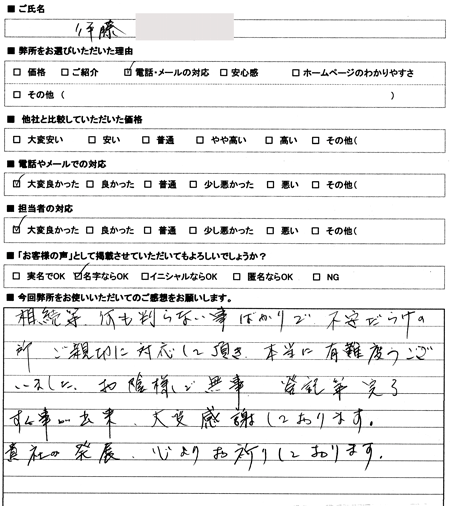 ■ ご氏名
伊藤
■ 弊所をお選びいただいた理由
□ 価格 □ ご紹介 ☑ 電話・メールの対応 □ 安心感 □ ホームページのわかりやすさ
□ その他 ( )
■ 他社と比較していただいた価格
□ 大変安い □ 安い □ 普通 □ やや高い □ 高い □ その他(
■ 電話やメールでの対応
☑ 大変良かった □ 良かった □ 普通 □ 少し悪かった □ 悪い □ その他(
■ 担当者の対応
☑ 大変良かった □ 良かった □ 普通 □ 少し悪かった □ 悪い □ その他(
■ 「お客様の声」として掲載させていただいてもよろしいでしょうか？
□ 実名でOK ☑ 名字ならOK □ イニシャルならOK □ 匿名ならOK □ NG
■ 今回弊所をお使いいただいてのご感想をお願いします。
相続等、何も判らない事ばかりで 不安だらけの
所 ご親切に対応して頂き、本当に有難度うござ
いました。お陰様で無事 登記等完了
する事が出来、大変感謝しております。
貴社の発展、心よりお祈りしております。